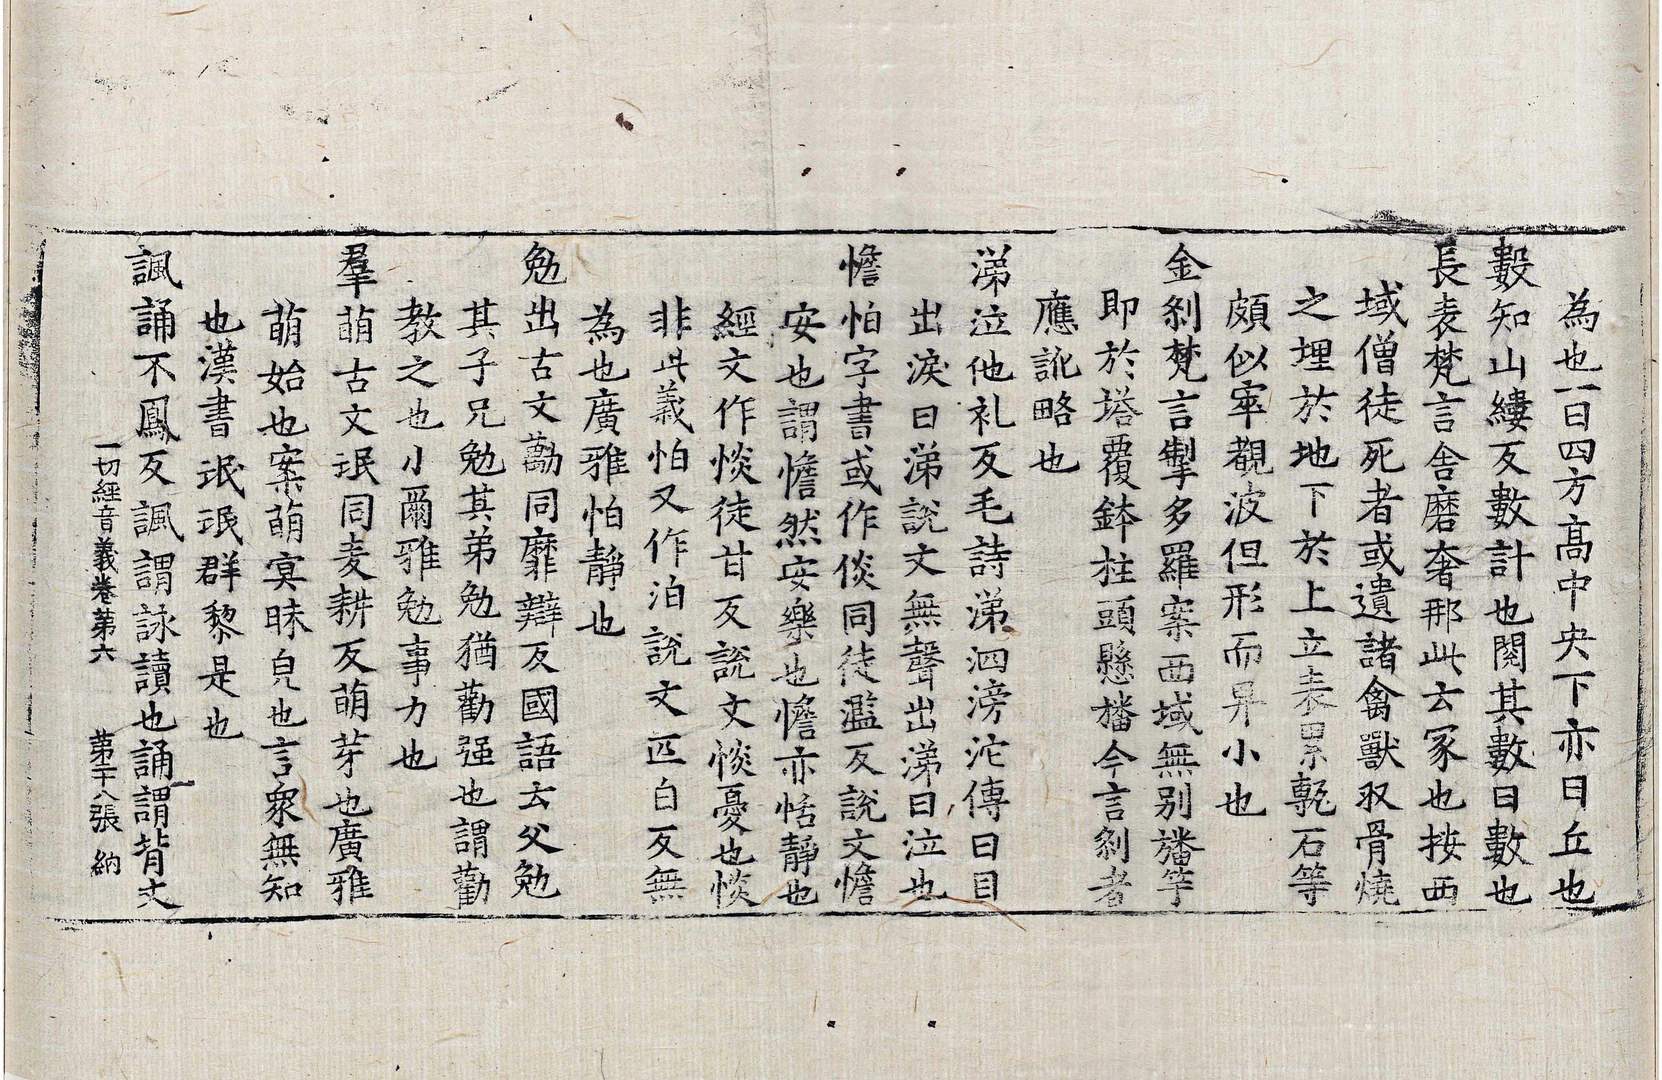 為也一曰四方高中央下亦曰丘也
數知山縷反數數計也閱其數曰數也
長表梵言舍磨奢那此云冢也按西
域僧徒死者或遺諸禽獸収骨燒
之埋於地下於上立表累甎石等
頗似窣覩波但形而卑小也
金剎梵言掣多羅案西域無別旛竿
即於塔覆鉢柱頭懸旛今言剎者
應訛略也
涕泣他礼反毛詩涕泗滂沱傳曰目
出淚曰涕說文無聲出涕曰泣也
憺怕字書或作倓同徒濫反說文憺
安也謂憺然安樂也憺亦恬靜也
經文作惔徒甘反說文惔憂也惔
非此義怕又作泊說文匹白反無
為也廣雅怕靜也
勉出古文勱同靡辯反國語云父勉
其子兄勉其弟勉猶勸强也謂勸
教之也小爾雅勉事力也
羣萌古文氓同麦耕反萌芽也廣雅
萌始也案萌冥昧皃也言衆無知
也漢書氓氓群黎是也
諷誦不鳳反諷謂詠讀也誦謂背文
一切經音義卷第六 第二十八張 納